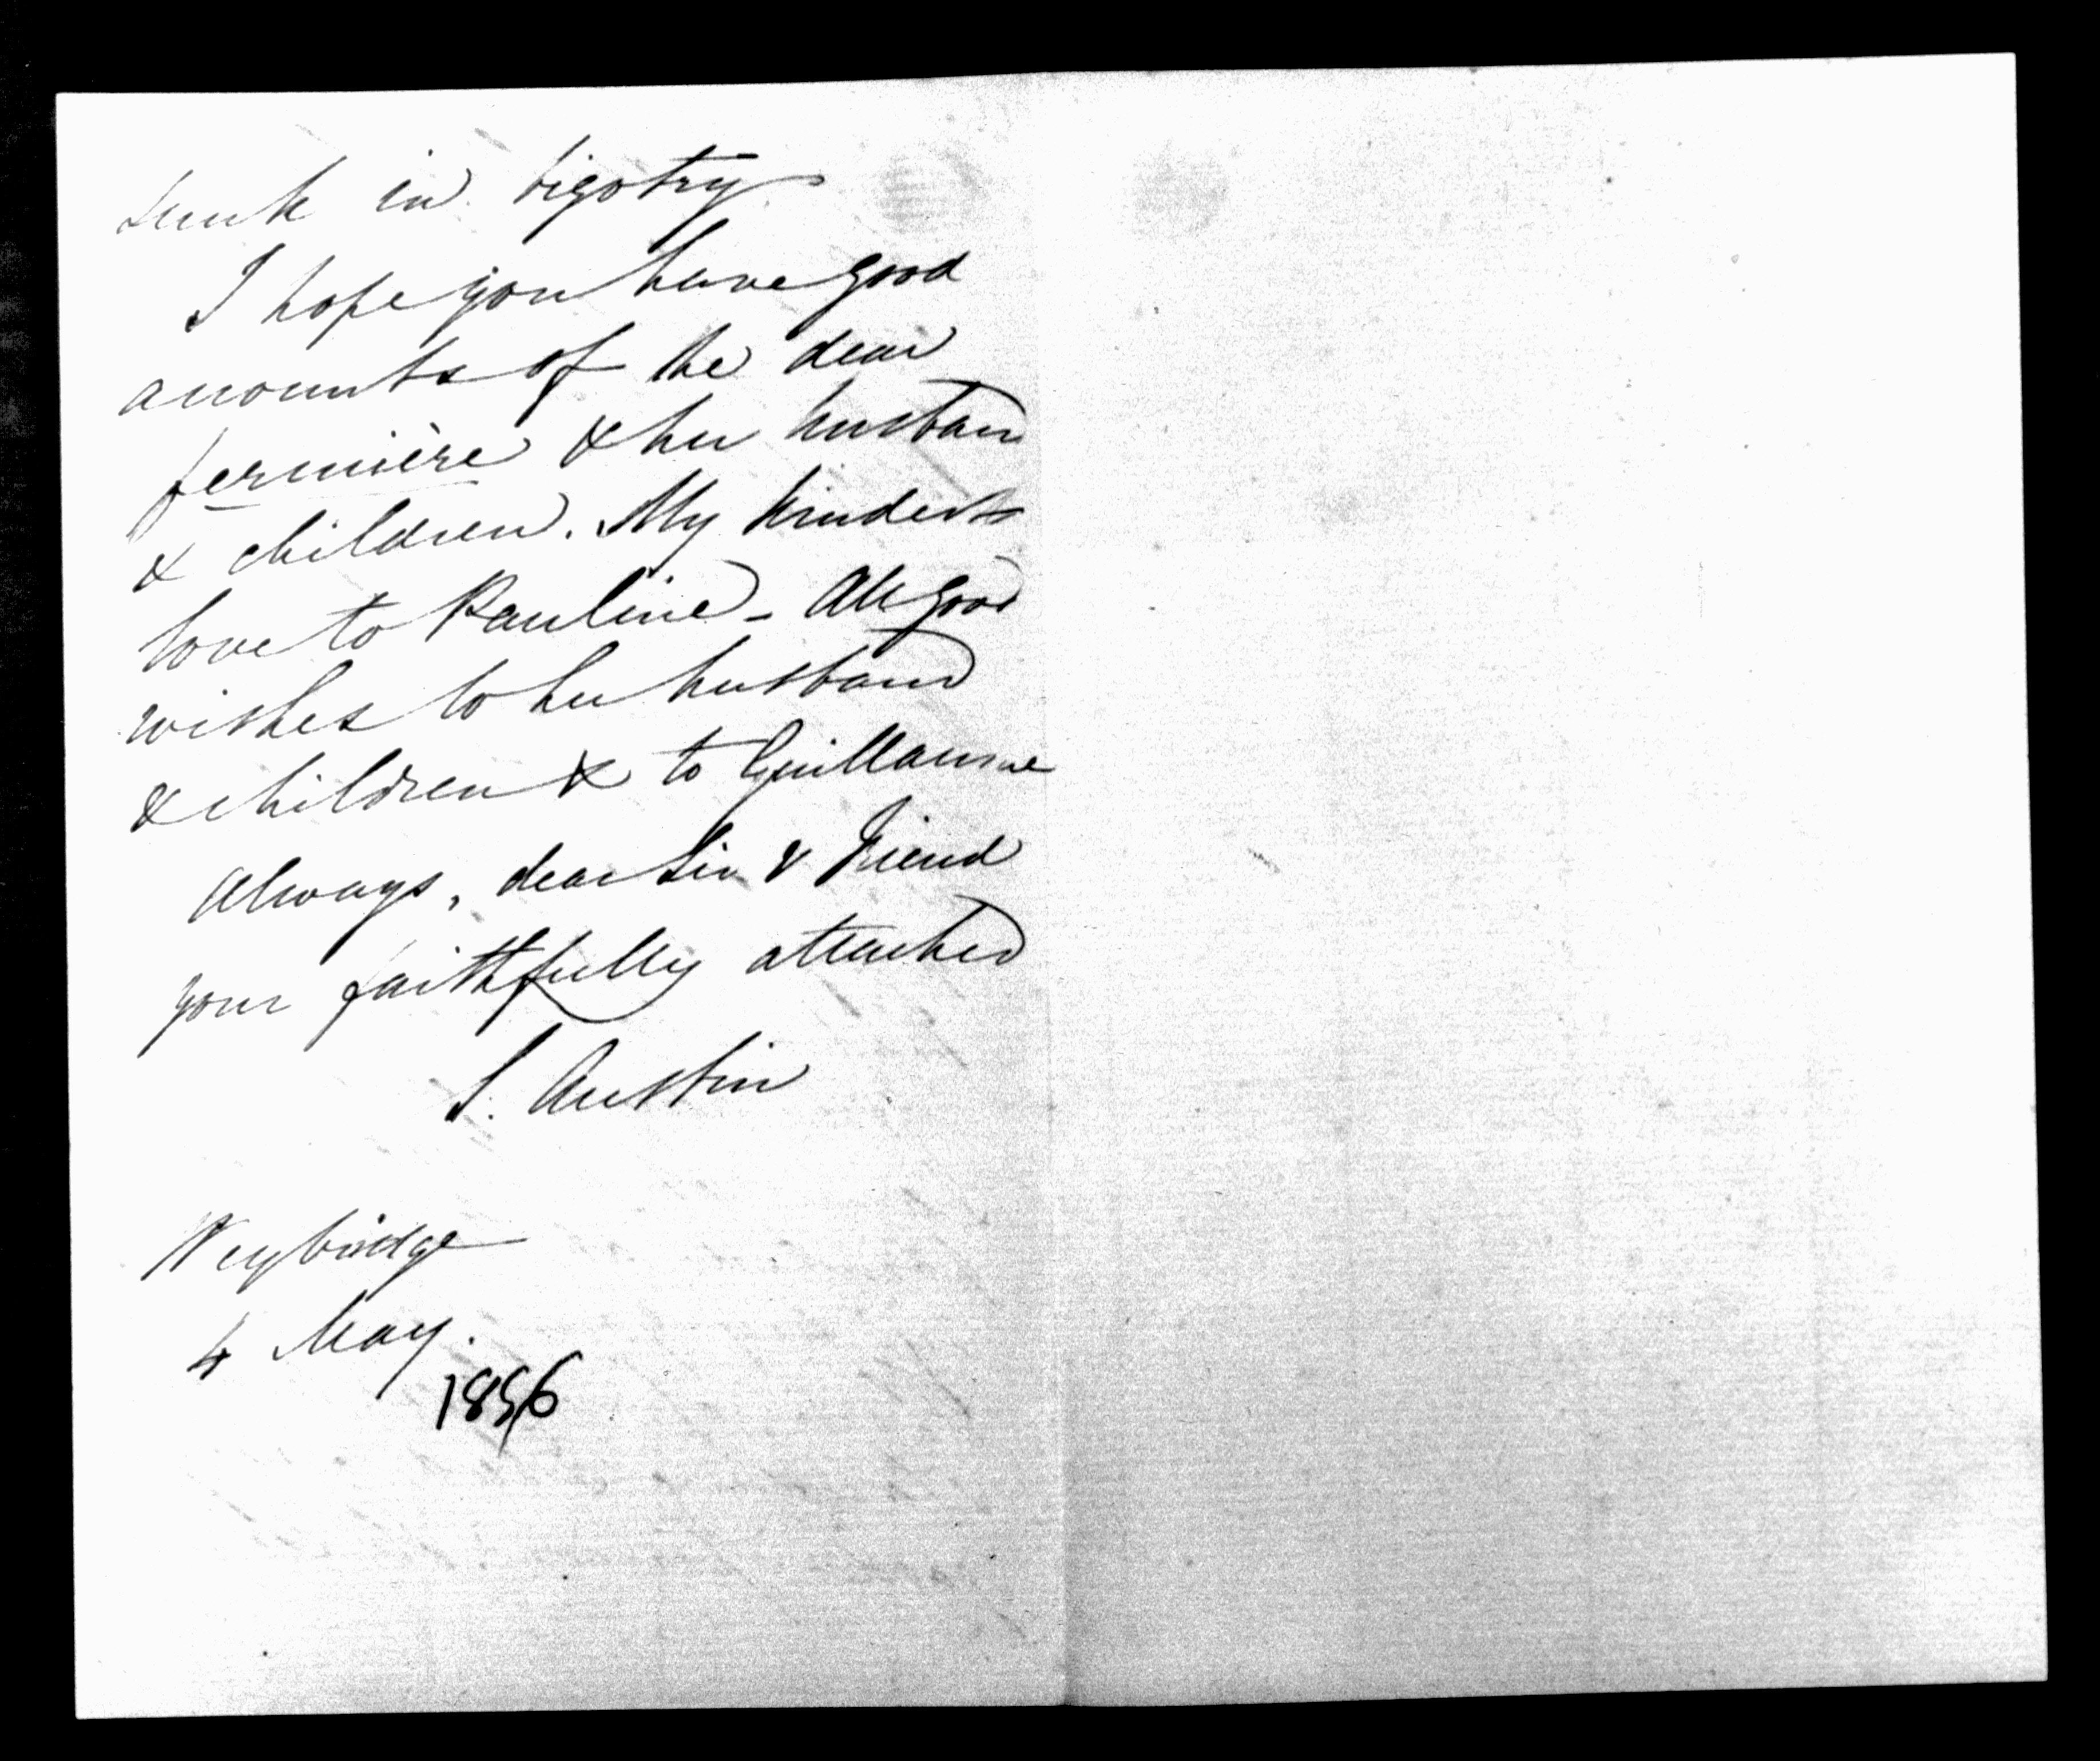 sunk in bigotry
I hope you have good
accounts of the dear
fermière & her husband
& children. My kindest
love to Pauline - All good
wishes to her husband
& children & to Guillaume
Always, dear Sir & Friend
your faithfully attached
S. Austin
Weybridge
4 May.
1856